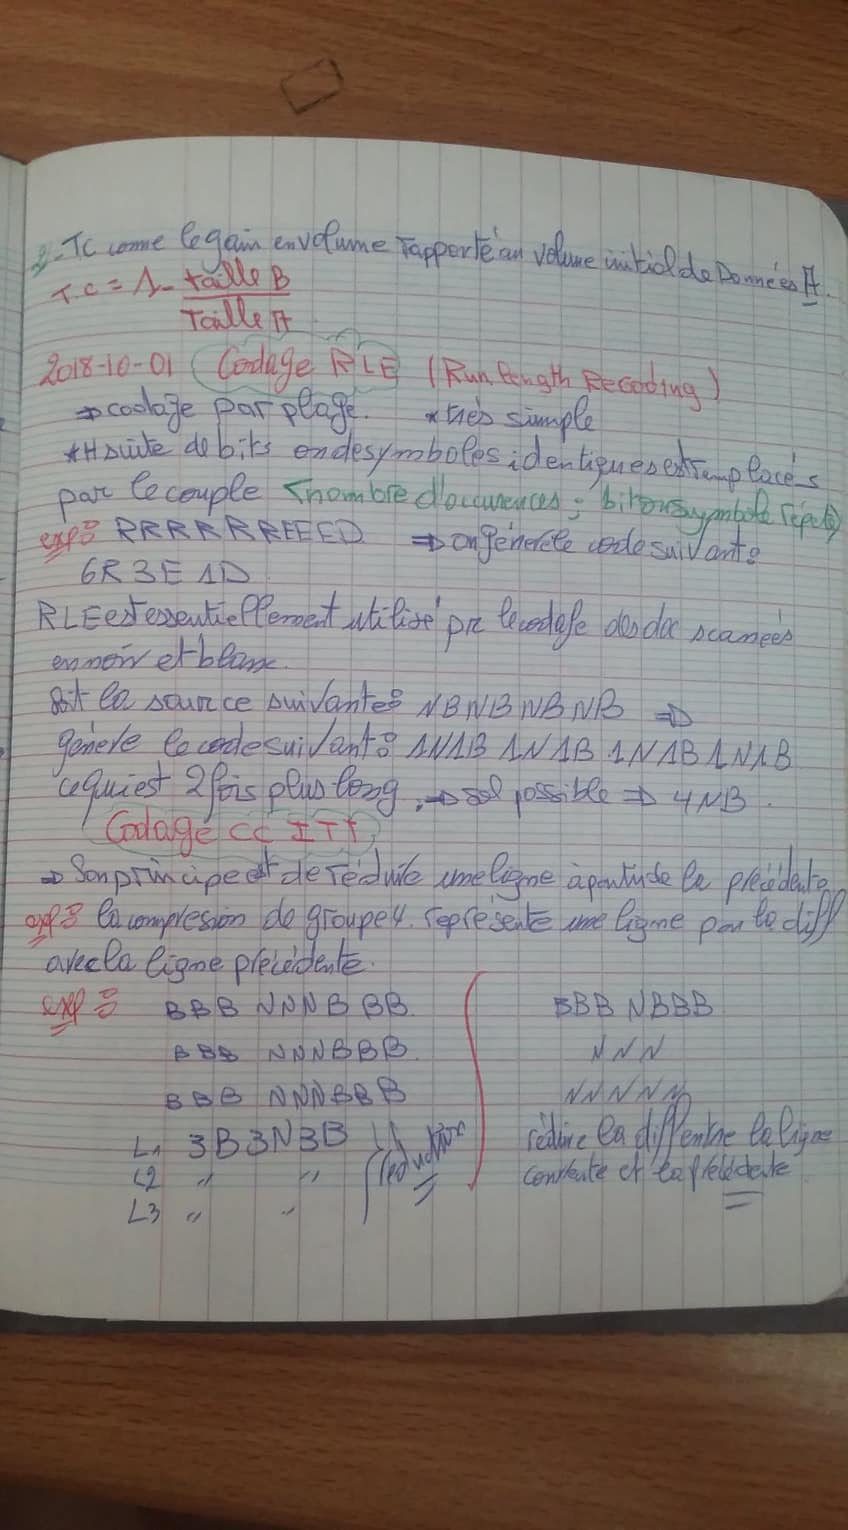 3- TC come le gain en volume rapporté au volume initial de Données A.
T.C = 1 - taille B
Taille A
2018-10-01 Codage RLE (Run length Recoding)
⇒ codage par plage. * très simple
* H suite de bits on de symboles identiques est remplacés
par le couple <nombre d'occurences; bit ou symbole répété>
exp: RRRRRREEED ⇒ on génère le code suivant:
6R3E1D
RLE est essentiellement utilisé pr le codage des doc scannées
en noir et blanc.
Soit la source suivante: NBNBNBNB ⇒
génère le code suivant: 1N1B 1N1B 1N1B 1N1B
ce qui est 2 fois plus long. ⇒ sol possible ⇒ 4NB.
Codage CCITT
⇒ Son principe est de réduite une ligne à partir de la précédente
exp: la compression de groupe 4. représente une ligne par la diff
avec la ligne précédente.
exp: BBB NNNB BB
BBB NNNBBB
BBB NNNBBB
L1 3B3N3B
L2 〃 〃
L3 〃 〃
réduction
BBB NBBB
NNN
NNNNN
la diff entre la ligne
et la précédente